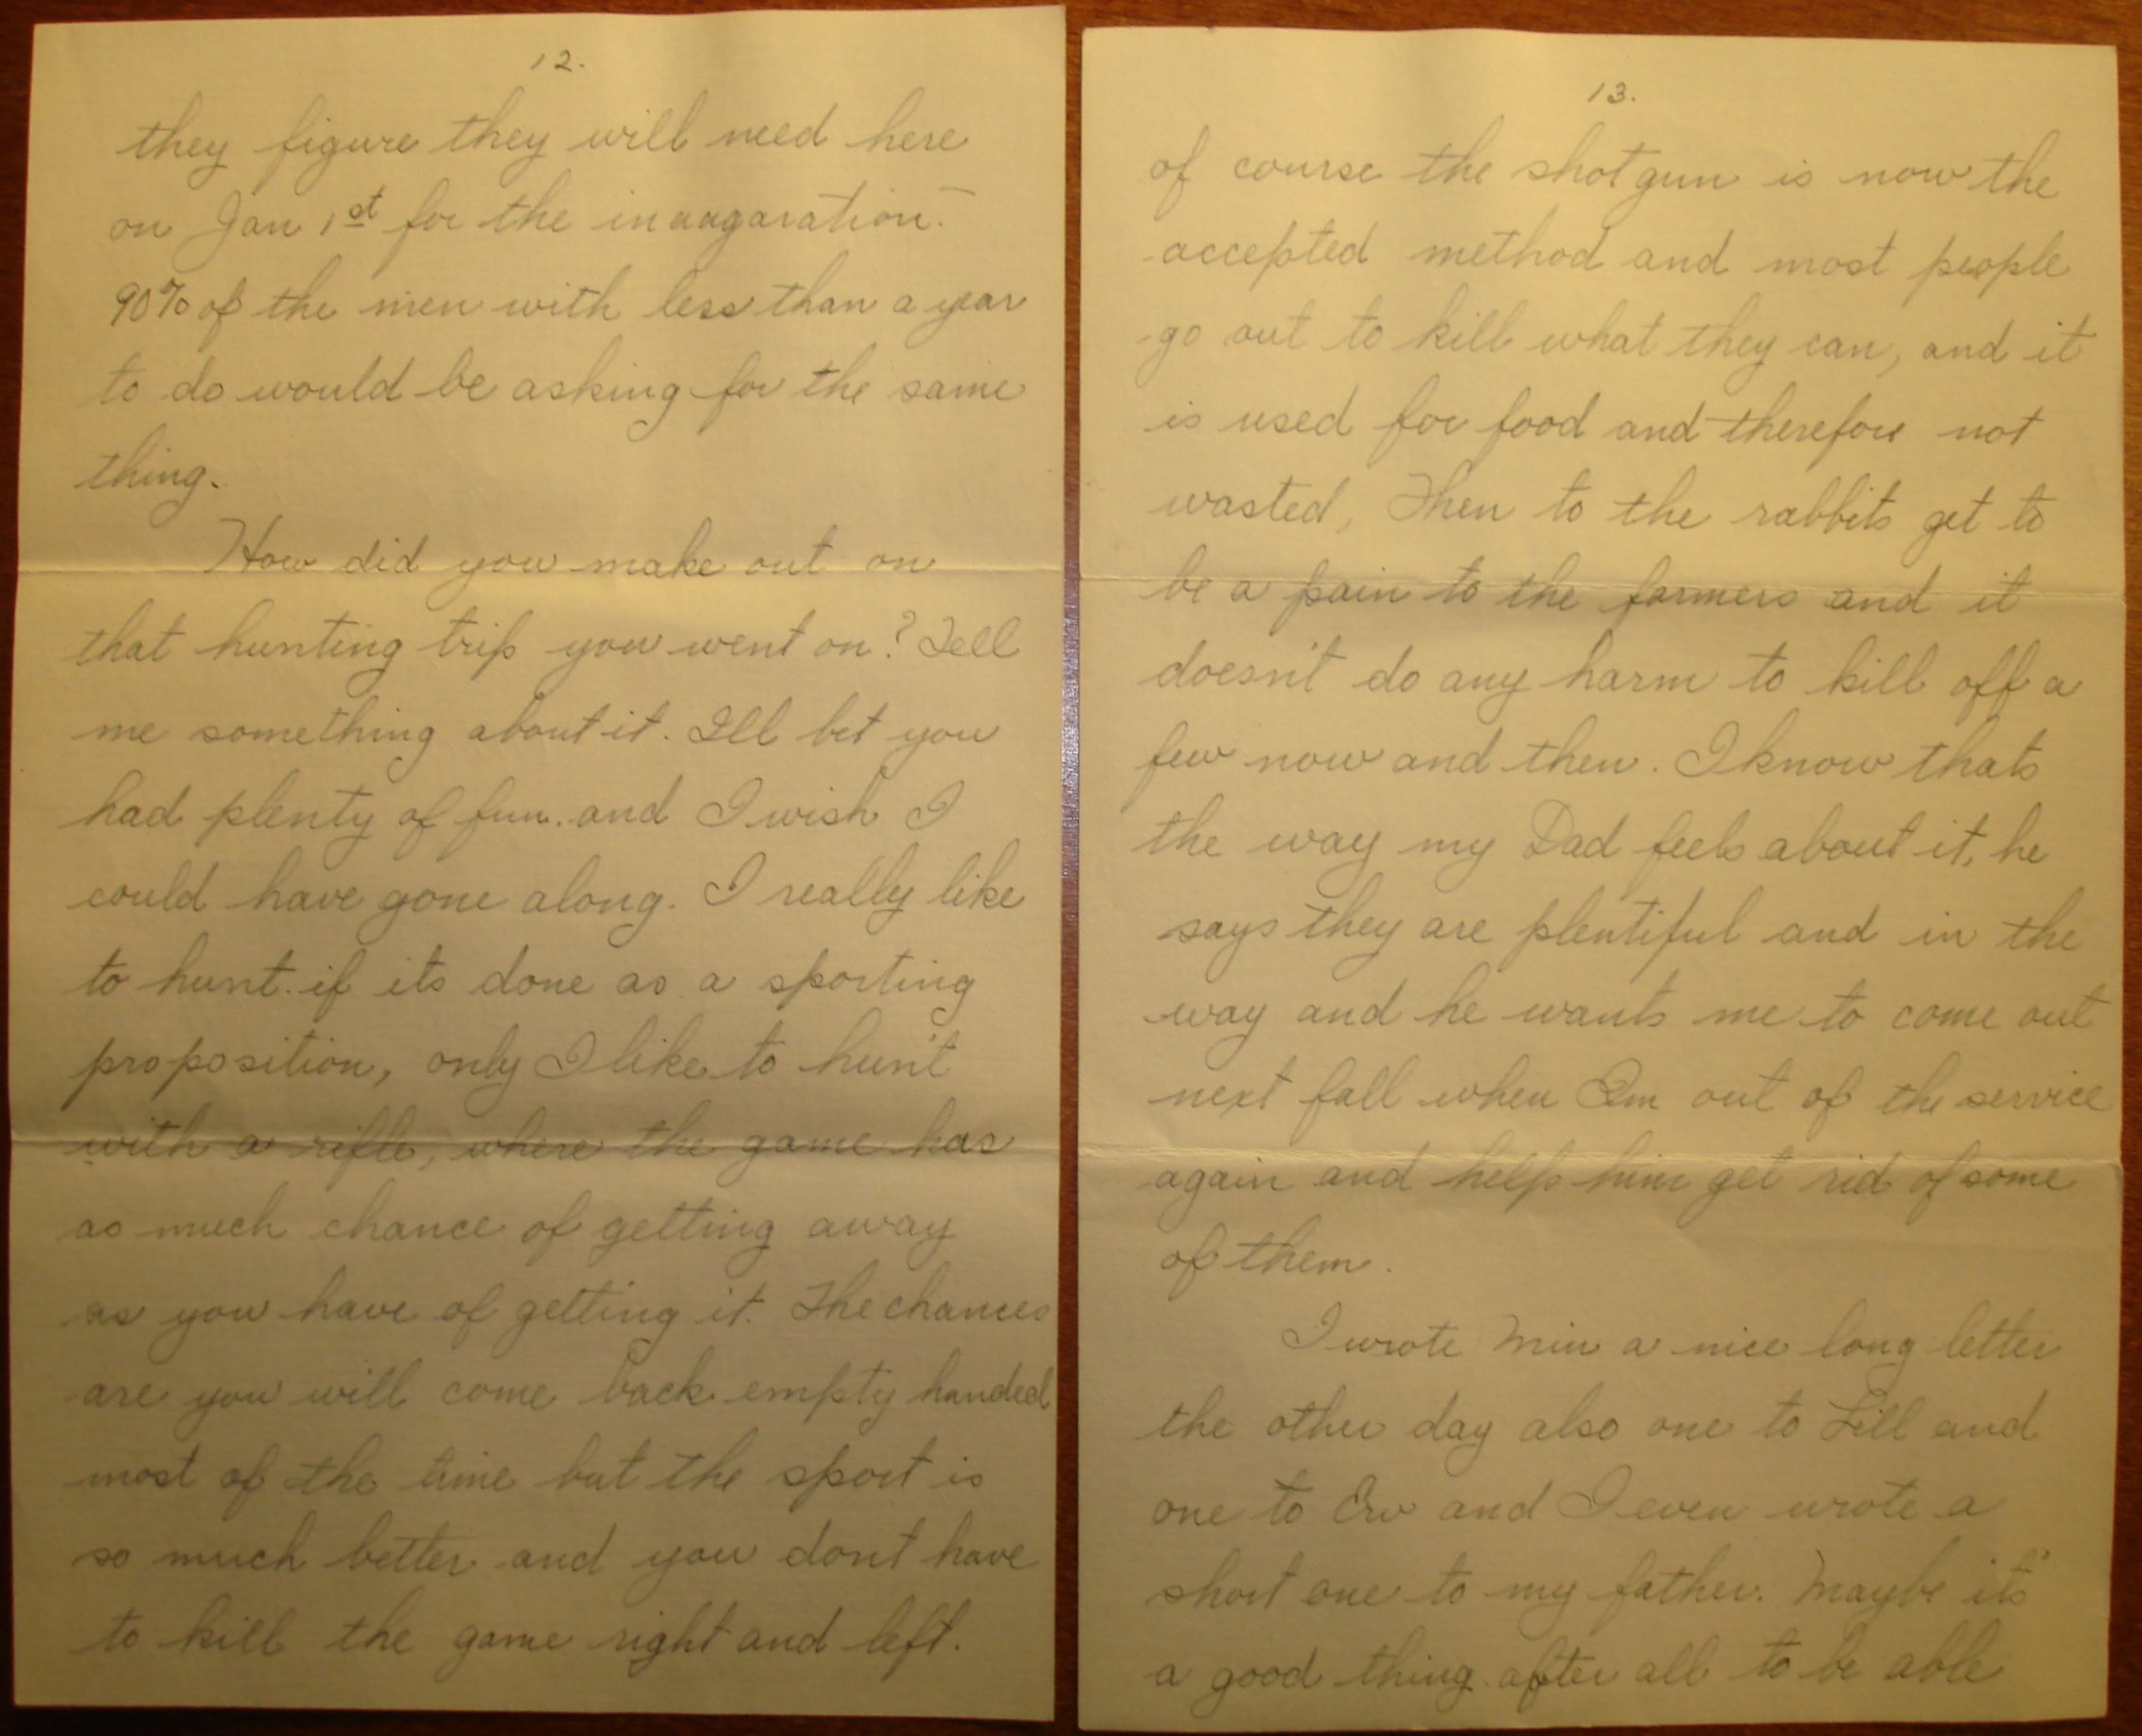 12.
they figure they will need here
on Jan 1st for the inaugaration.
90% of the men with less than a year
to do would be asking for the same
thing.
How did you make out on
that hunting trip you went on? Tell
me something about it. Ill bet you
had plenty of fun. and I wish I
could have gone along. I really like
to hunt. if its done as a sporting
proposition, only I like to hunt
with a rifle, where the game has
as much chance of getting away
as you have of getting it. The chances
are you will come back empty handed
most of the time but the sport is
so much better and you dont have
to kill the game right and left.
13.
of course the shotgun is now the
accepted method and most people
go out to kill what they can, and it
is used for food and therefore not
wasted, Then to the rabbits get to
be a pain to the farmers and it
doesn't do any harm to kill off a
few now and then. I know thats
the way my Dad feels about it, he
says they are plentiful and in the
way and he wants me to come out
next fall when Im out of the service
again and help him get rid of some
of them.
I wrote Min a nice long letter
the other day also one to Lill and
one to Erv and I even wrote a
short one to my father. Maybe its
a good thing after all to be able